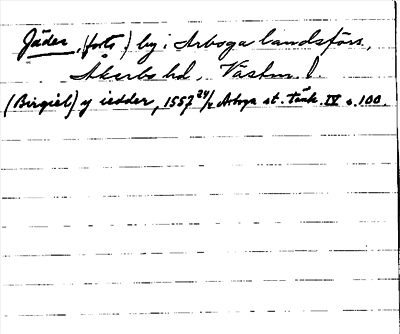 Jäder, (forts.) by i Arboga landsförs.,
Åkerbo hd., Västm. l.
(Birgiel) y iedder, 1557 24/2 Arboga st. Tänk. IV s. 100.